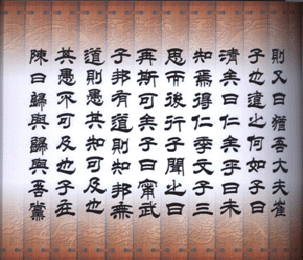 則又曰猶吾大夫崔
子也違之何如子曰
清矣曰仁矣乎曰未
知焉得仁季文子三
思而後行子聞之曰
再斯可矣子曰甯武
子邦有道則知邦無
道則愚其知可及也
其愚不可及也子在
陳曰歸與歸與吾黨